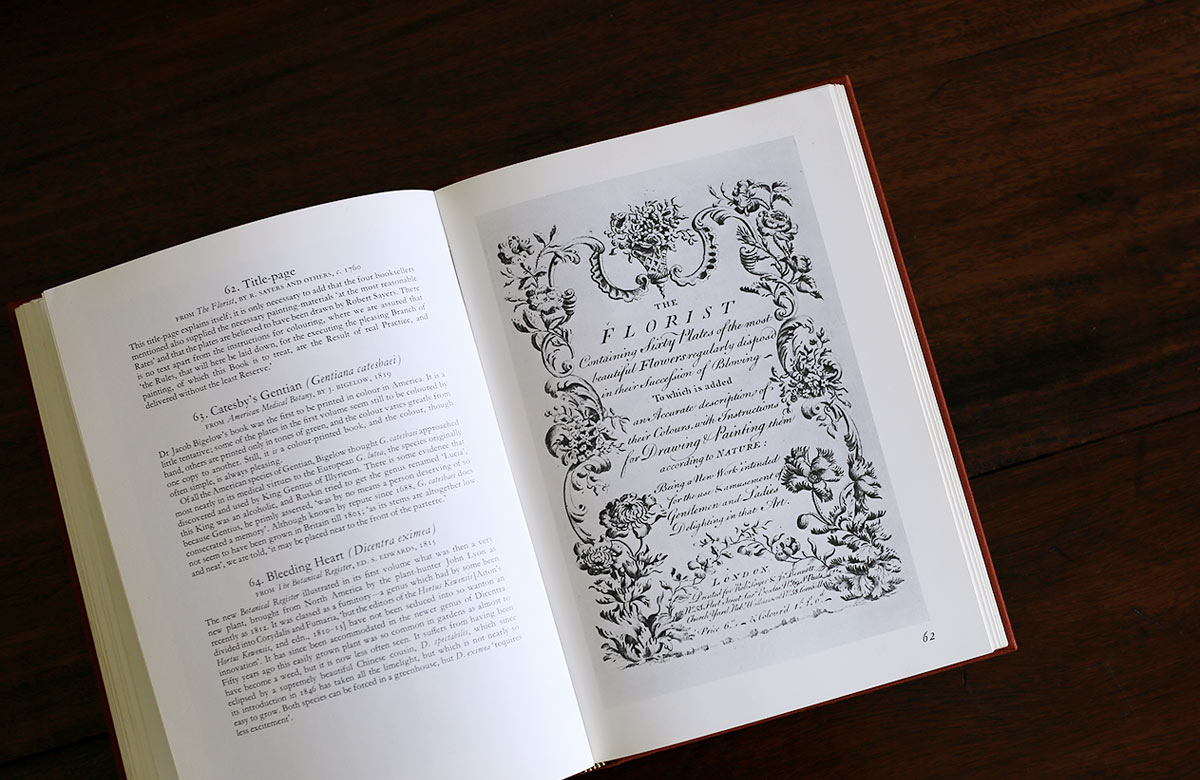 62. Title-page
FROM The Florist, BY R. SAYERS AND OTHERS, c. 1760
This title-page explains itself; it is only necessary to add that the four booksellers
mentioned also supplied the necessary painting-materials 'at the most reasonable
Rates' and that the plates are believed to have been drawn by Robert Sayers. There
is no text apart from the instructions for colouring, where we are assured that
'the Rules, that will here be laid down, for the executing the pleasing Branch of
painting, of which this Book is to treat, are the Result of real Practice, and
delivered without the least Reserve.'
63. Catesby's Gentian (Gentiana catesbaei)
FROM American Medical Botany, BY J. BIGELOW, 1819
Dr Jacob Bigelow's book was the first to be printed in colour in America. It is a
little tentative; some of the plates in the first volume seem still to be coloured by
hand, others are printed only in tones of green, and the colour varies greatly from
one copy to another. Still, it is a colour-printed book, and the colour, though
often simple, is always pleasing.
Of all the American species of Gentian, Bigelow thought G. catesbaei approached
most nearly in its medical virtues to the European G. lutea, the species originally
discovered and used by King Gentius of Illyricum. There is some evidence that
this King was an alcoholic, and Ruskin tried to get the genus renamed 'Lucia',
because Gentius, he primly asserted, 'was by no means a person deserving of so
consecrated a memory'. Although known by repute since 1688, G. catesbaei does
not seem to have been grown in Britain till 1803; 'as its stems are altogether low
and neat', we are told, 'it may be placed near to the front of the parterre.'
64. Bleeding Heart (Dicentra eximea)
FROM The Botanical Register, ED. S. EDWARDS, 1815
The new Botanical Register illustrated in its first volume what was then a very
new plant, brought from North America by the plant-hunter John Lyon as
recently as 1812. It was classed as a fumitory—a genus which had by some been
divided into Corydalis and Fumaria, 'but the editors of the Hortus Kewensis [Aiton's
Hortus Kewensis, 2nd edn., 1810–13] have not been seduced into so wanton an
innovation'. It has since been accommodated in the newer genus of Dicentra.
Fifty years ago this easily grown plant was so common in gardens as almost to
have become a weed, but it is now less often seen. It suffers from having been
eclipsed by a supremely beautiful Chinese cousin, D. spectabilis, which since
its introduction in 1846 has taken all the limelight, but which is not nearly so
easy to grow. Both species can be forced in a greenhouse, but D. eximea 'requires
less excitement'.
THE
FLORIST
Containing Sixty Plates of the most
beautiful Flowers regularly dispos'd
in their Succession of Blowing
To which is added
an Accurate description of
their Colours, with Instructions
for Drawing & Painting them
according to NATURE:
Being a New Work intended
for the use & amusement of
Gentlemen and Ladies
Delighting in that Art.
LONDON.
62